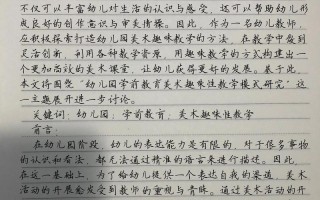 不仅可以丰富幼儿对生活的认识与感受，还可以帮助幼儿形
成良好的创作意识与审美情操。因此，作为一名幼儿教师，
应积极探索打造幼儿园美术趣味教学的方法，在教学中做到
灵活创新，利用各种教学资源，用趣味教学的方式构建出一
个更加高效的美术课堂，让幼儿获得更好的发展。基于此，
本文将围绕“幼儿园学前教育美术趣味性教学模式研究”这
一主题展开进一步讨论。
关键词：幼儿园；学前教育；美术趣味性教学
前言：
在幼儿园阶段，幼儿的表达能力是有限的，对于很多事物
的认识和看法，都无法通过精准的语言来进行描述。因此，
在这一基础上，为了给幼儿提供一个表达自我的渠道，美术
活动的开展愈发受到教师的重视与青睐。通过美术活动的开